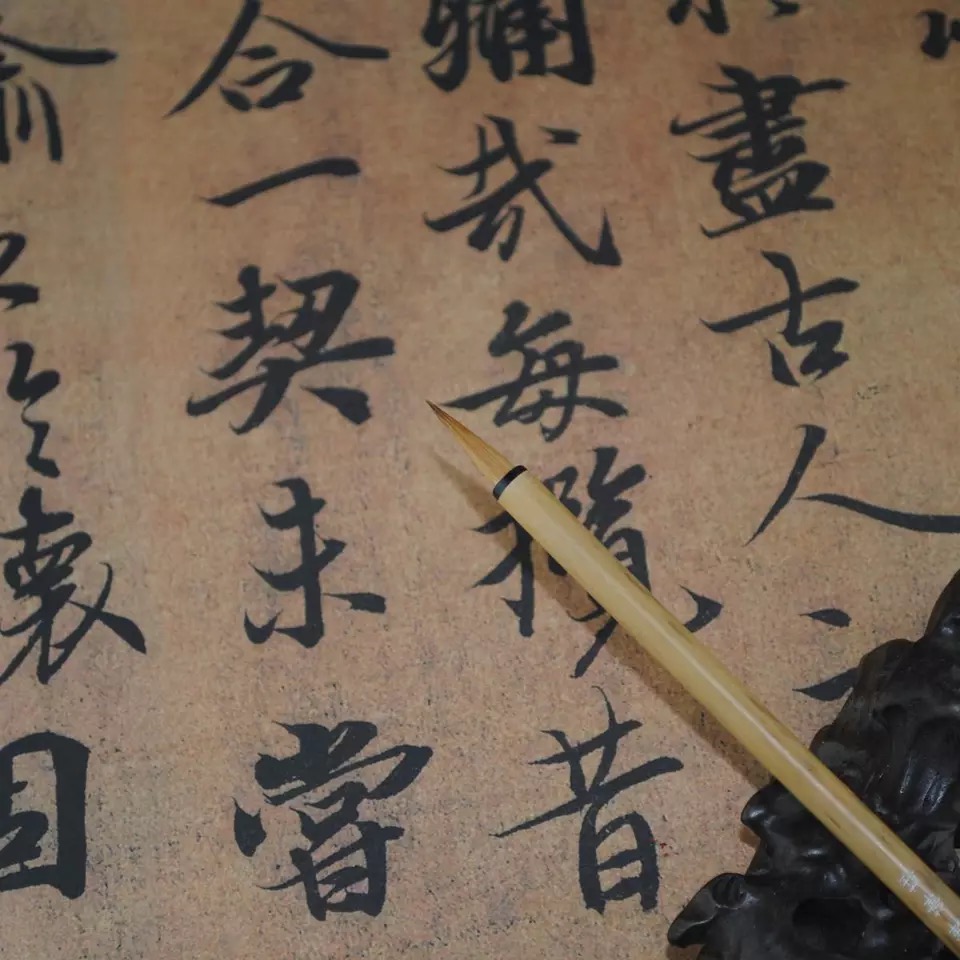 盡古人
哉每攬昔
合一契未嘗
懷固